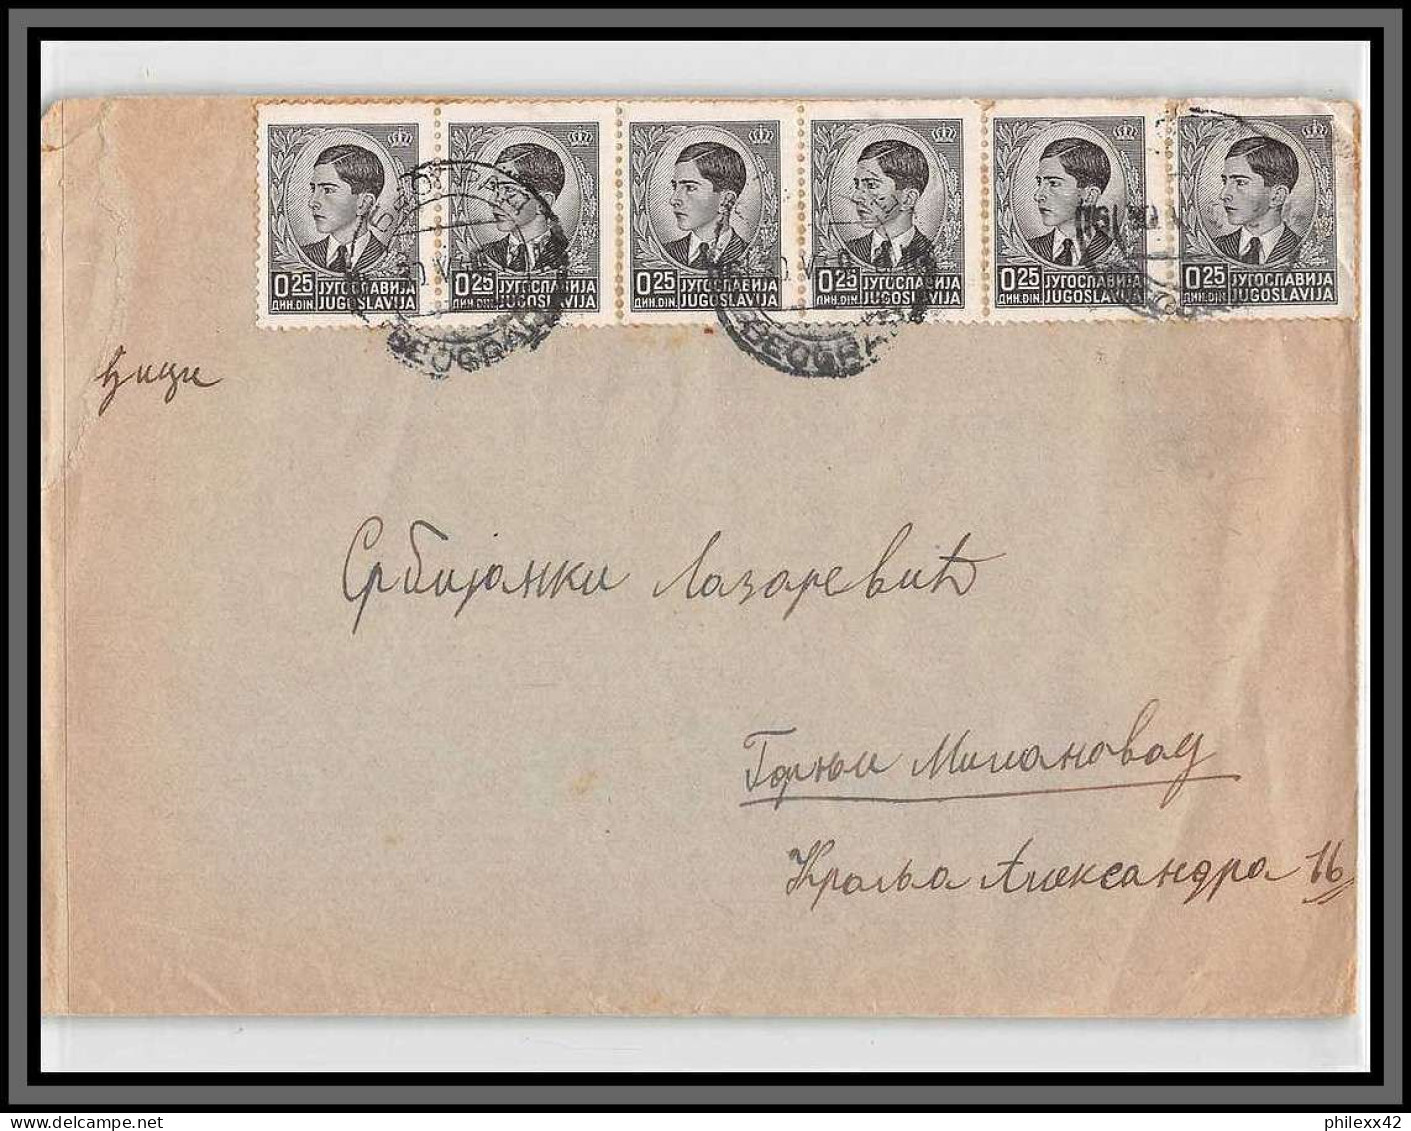 0.25 ЈУГОСЛАВИЈА
ДИН.DIN. JUGOSLAVIJA
0.25 ЈУГОСЛАВИЈА
ДИН.DIN. JUGOSLAVIJA
0.25 ЈУГОСЛАВИЈА
ДИН.DIN. JUGOSLAVIJA
0.25 ЈУГОСЛАВИЈА
ДИН.DIN. JUGOSLAVIJA
0.25 ЈУГОСЛАВИЈА
ДИН.DIN. JUGOSLAVIJA
0.25 ЈУГОСЛАВИЈА
ДИН.DIN. JUGOSLAVIJA
БЕОГРАД
BEOGRAD
BEOGRAD
Србијанки Лазаревић
Горњи Милановац
Краља Александра 16
philexx42